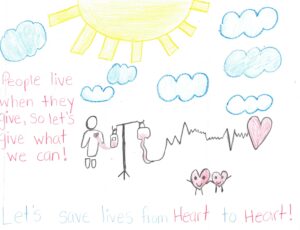 People live
when they
give, So let's
give what
we can!
Let's save lives from Heart to Heart!